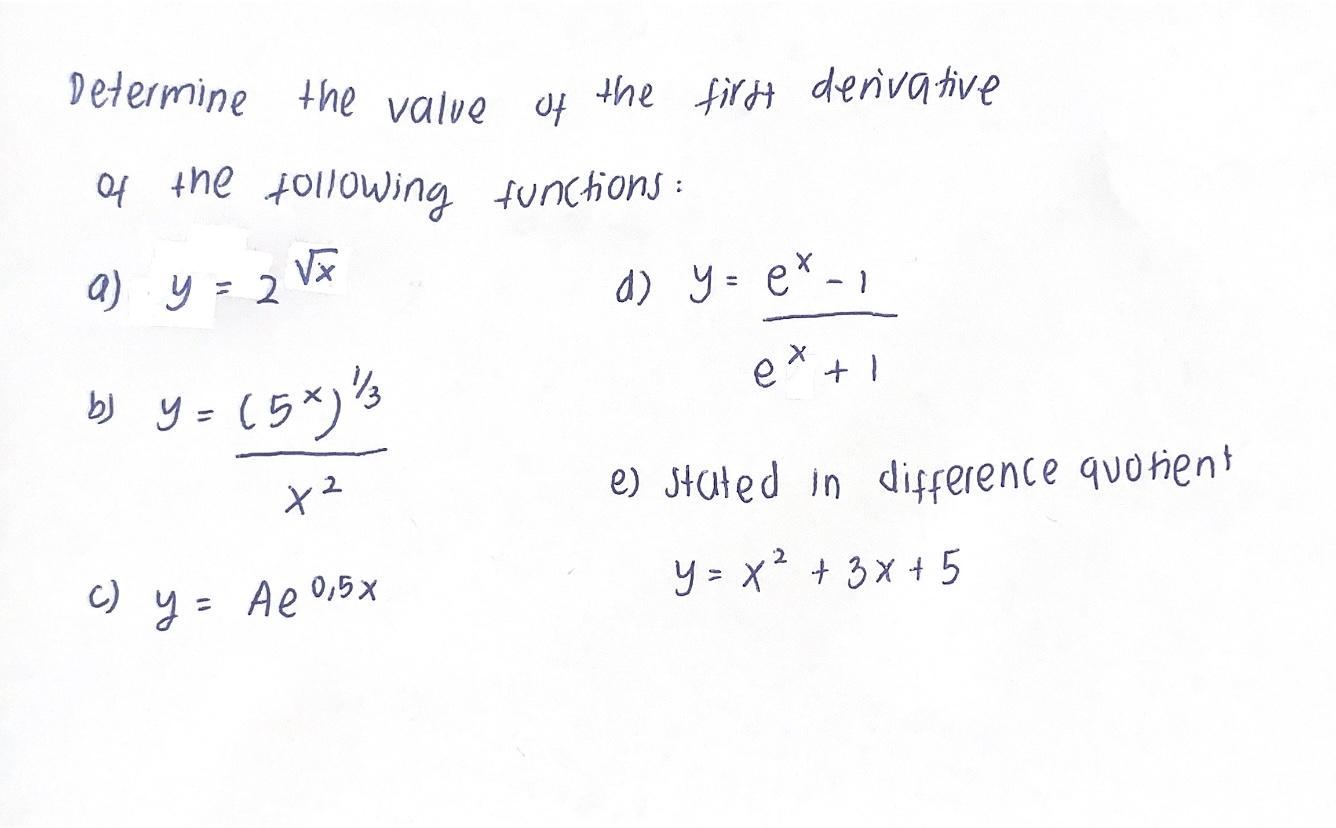 Determine the value of the first derivative
of the following functions:
a) y = 2^√x
b) y = (5^x)^1/3
x^2
c) y = Ae^0,5x
d) y = e^x - 1
e^x + 1
e) stated in difference quotient
y = x^2 + 3x + 5